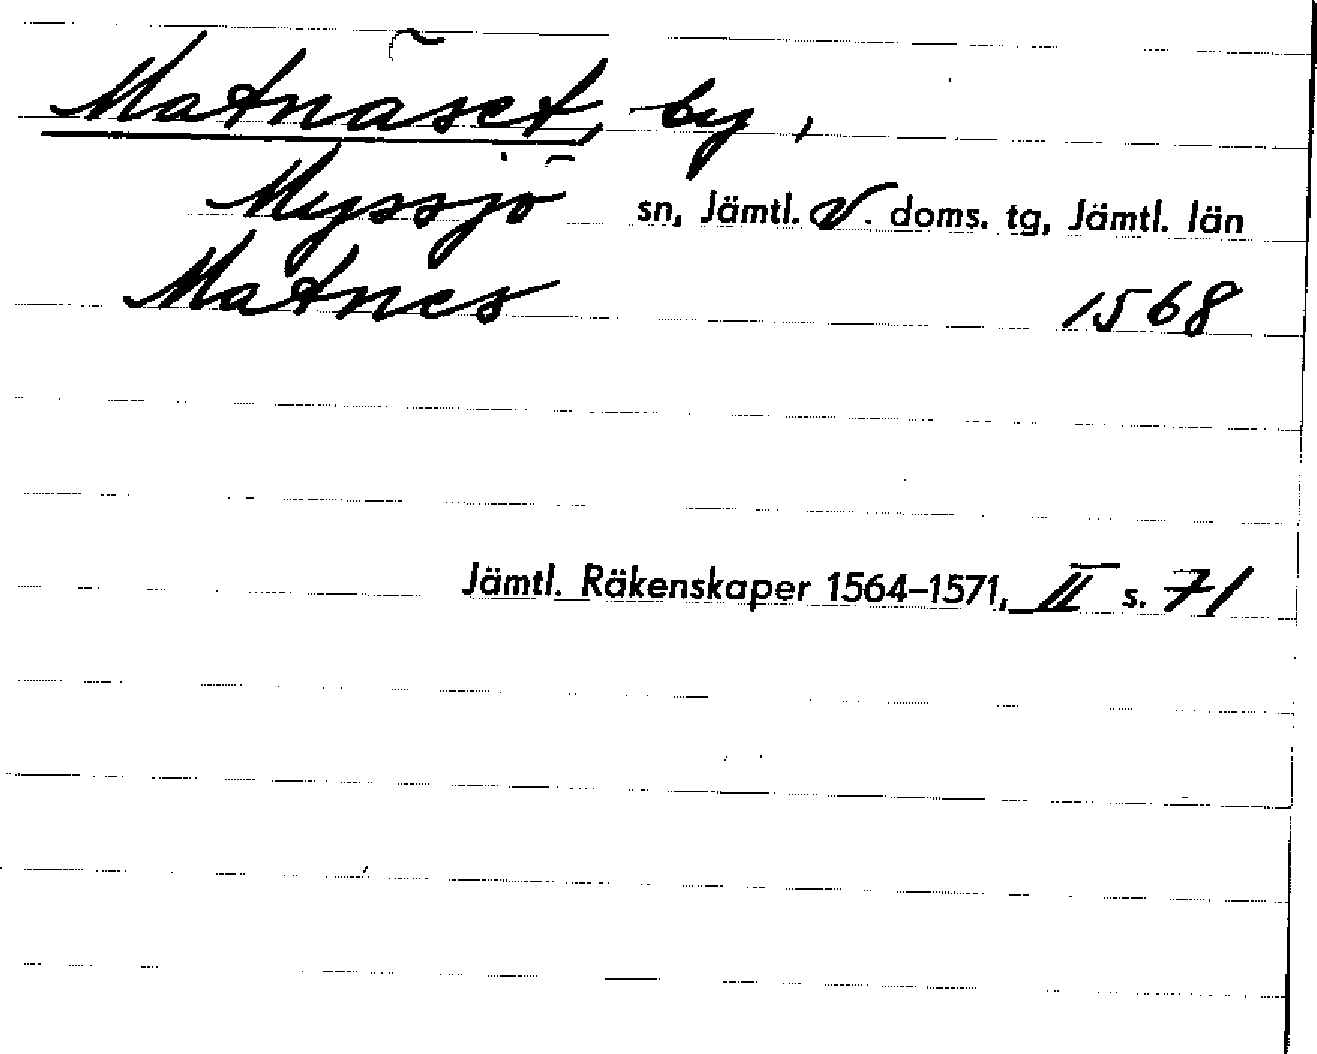 Matnäset, by,
Myssjö sn, Jämtl. V. doms. tg, Jämtl. län
Matnes 1568
Jämtl. Räkenskaper 1564–1571, II s. 71